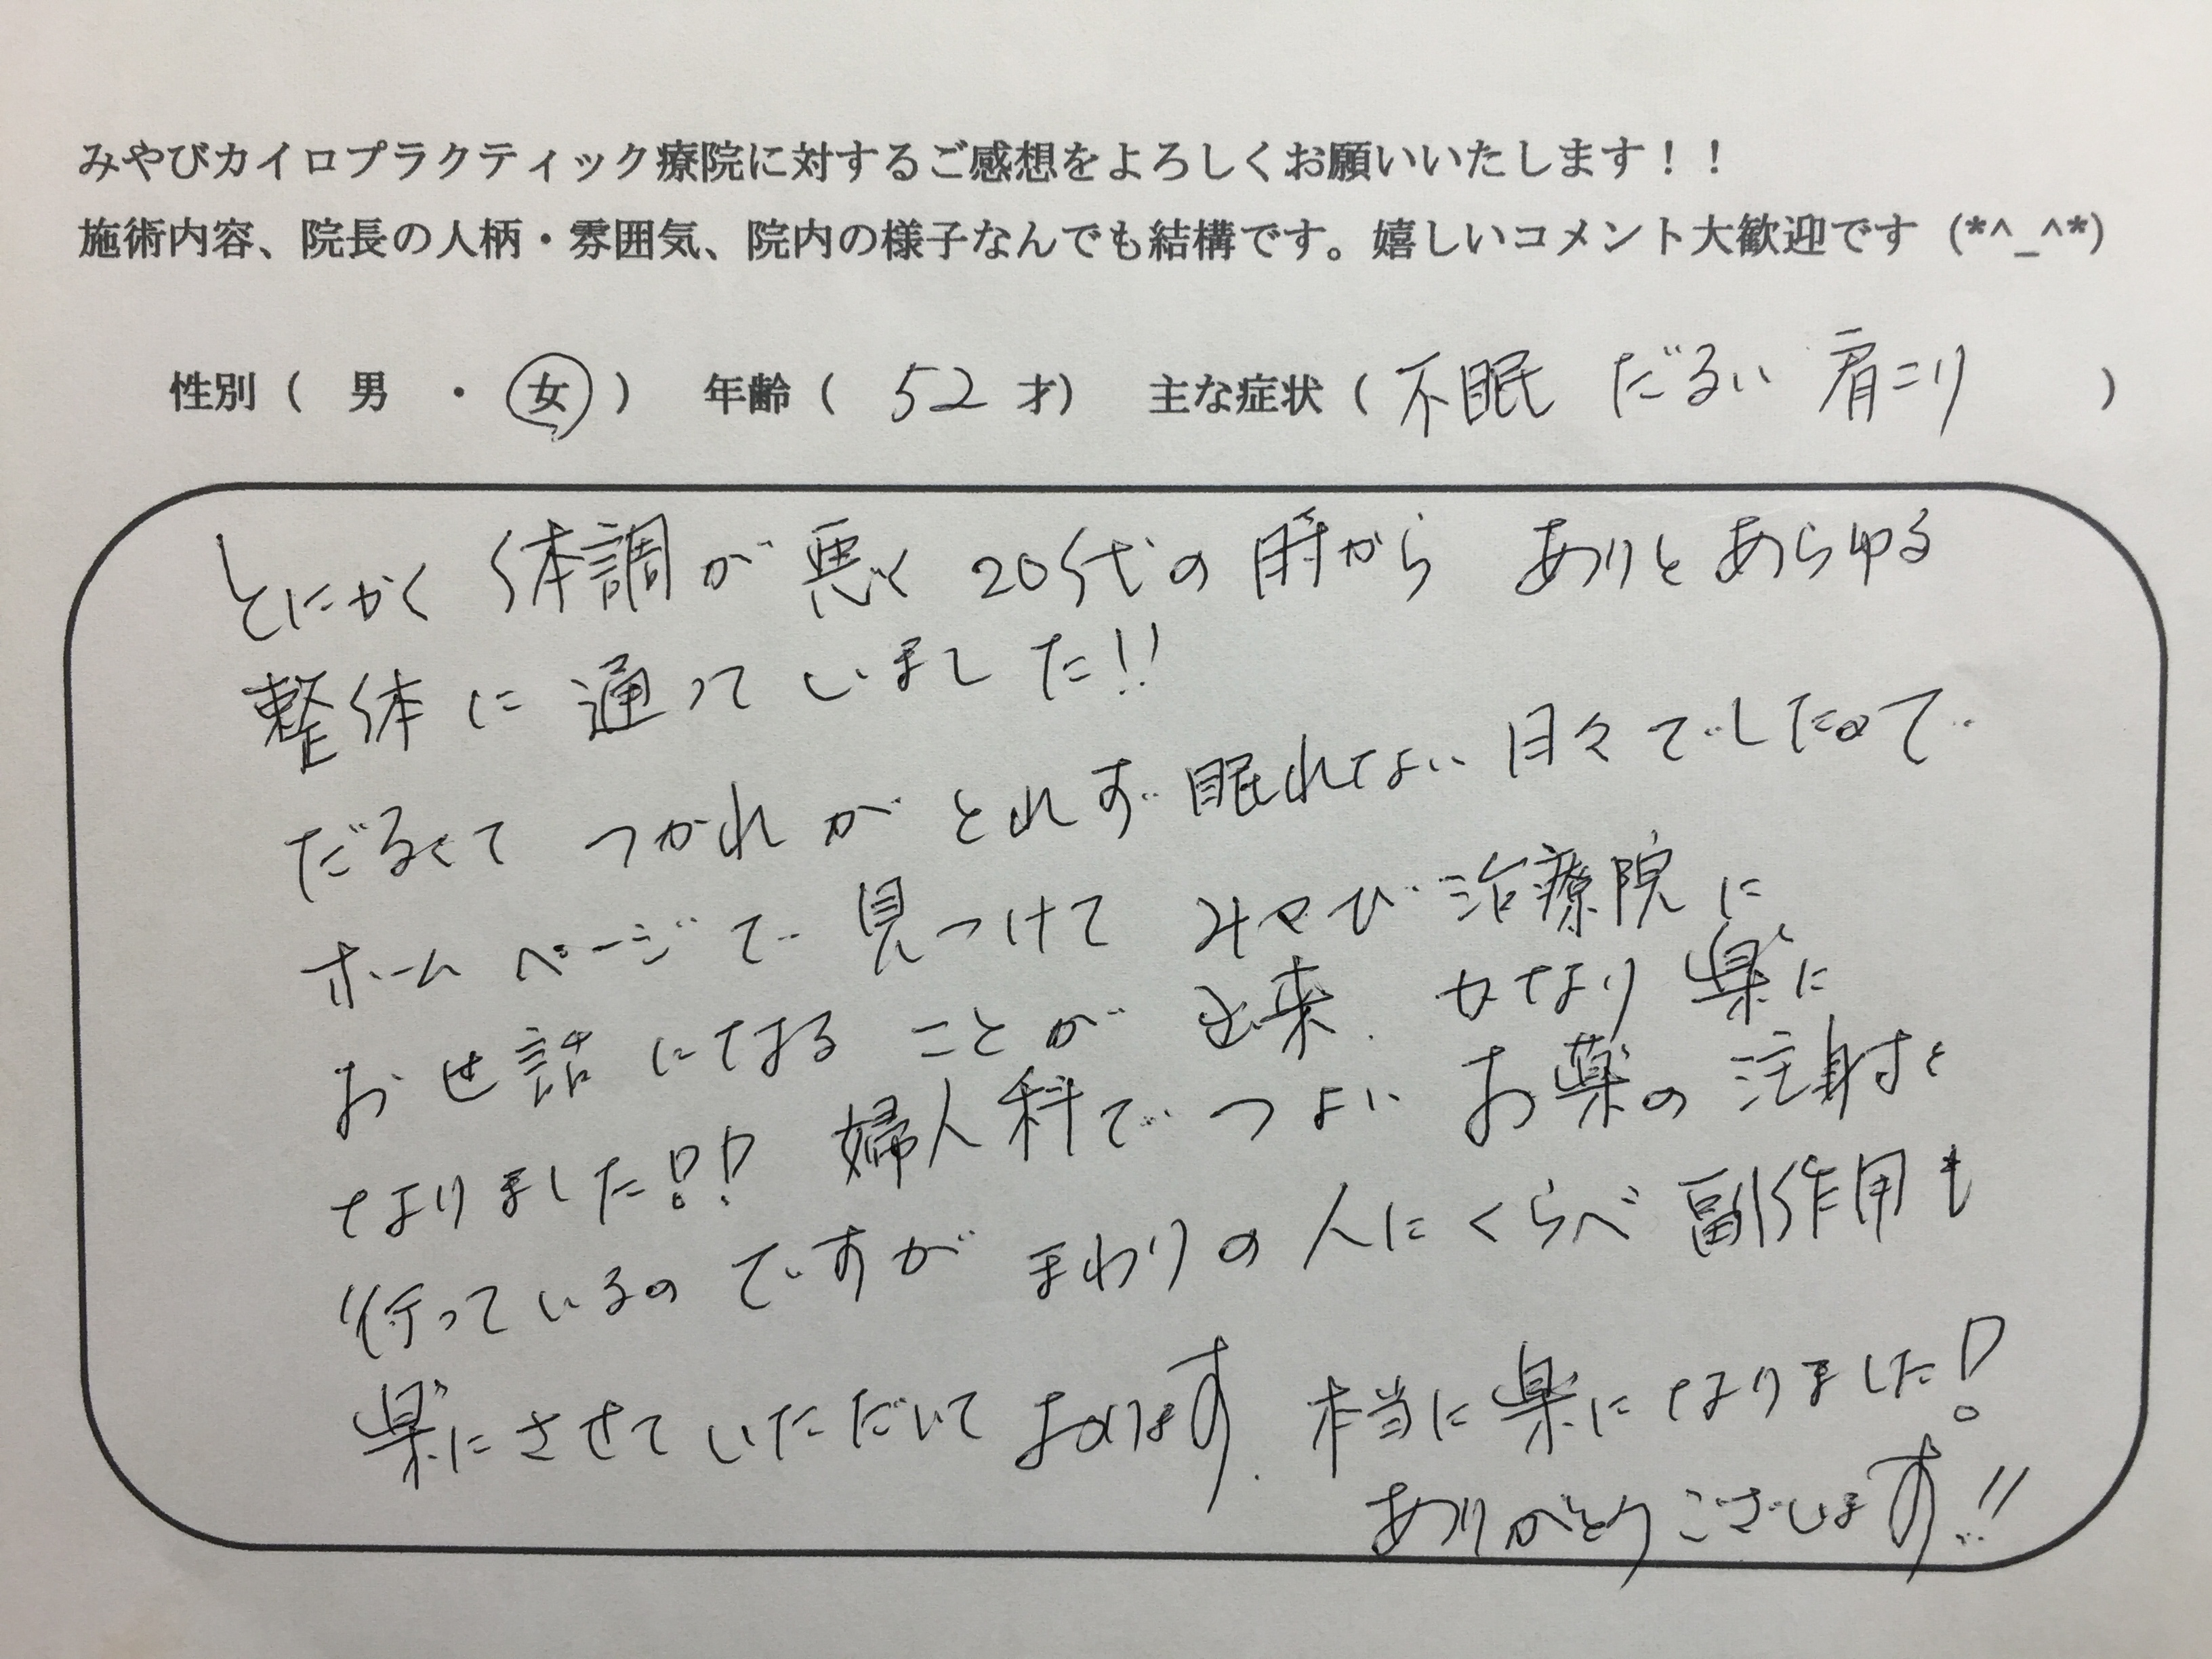 みやびカイロプラクティック療院に対するご感想をよろしくお願いいたします！！
施術内容、院長の人柄・雰囲気、院内の様子なんでも結構です。嬉しいコメント大歓迎です (*^_^*)
性別（ 男 ・ 女 ） 年齢（ 52 才） 主な症状（ 不眠 だるい 肩こり ）
とにかく 体調が 悪く 20代の時から ありとあらゆる
整体に 通って いました!!
だるくて つかれが とれず 眠れない 日々でしたので
ホームページで 見つけて みやび治療院に
お世話になる ことが 出来、かなり 楽に
なりました!! 婦人科で つよい お薬の 注射を
行っているのですが まわりの人にくらべ 副作用も
楽にさせていただいて おります。本当に楽になりました!
ありがとうございます!!